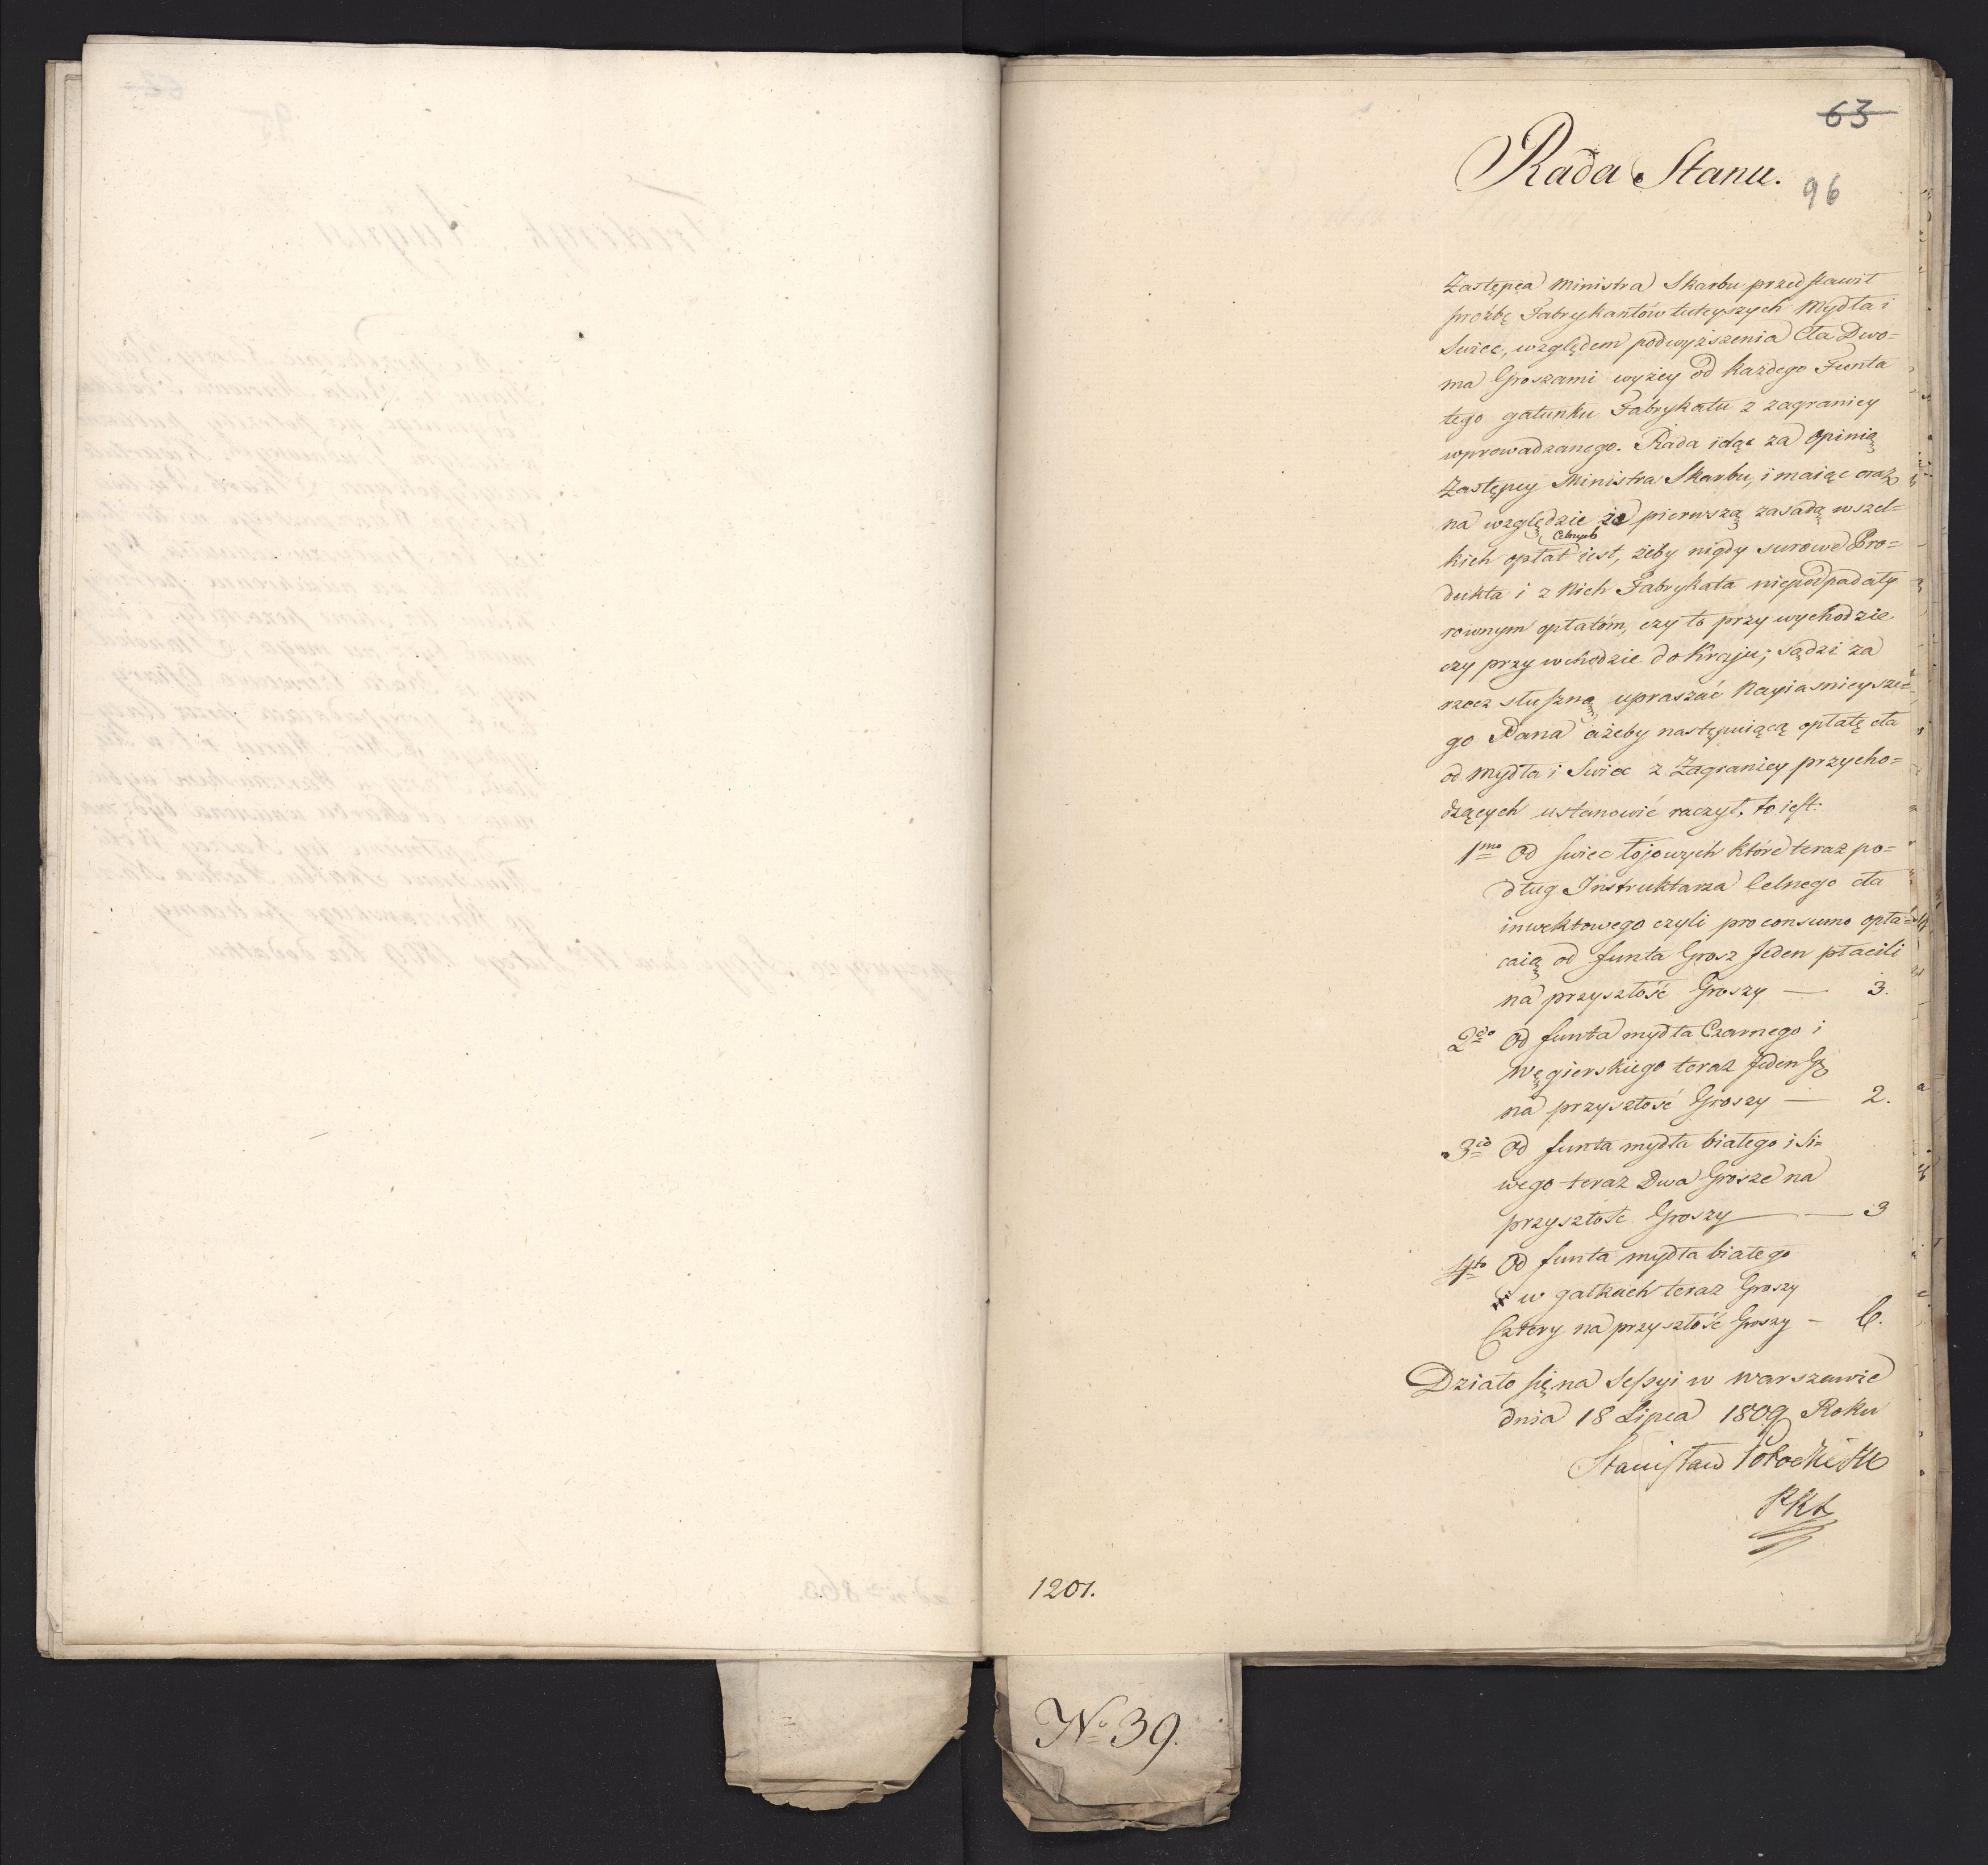 63
Rada Stanu.
96
Zastępca Ministra Skarbu przedstawił
proźbę Fabrykantów tuteyszych Mydła i
Swiec, względem podwyższenia Cła Dwo=
ma Groszami wyżey od każdego Funta
tego gatunku Fabrykatu z zagranicy
wprowadzanego. Rada idąc za Opinią
Zastępcy Ministra Skarbu, i maiąc oraz
na względzie że pierwszą zasadą wszel=
Celnych
kich opłat iest, żeby nigdy surowe Pro=
dukta i z Nich Fabrykata niepodpadały
rownym opłatóm, czy to przy wychodzie
czy przy wchodzie do Kraju; sądzi za
rzecz słuszną upraszać Nayiasnieysze=
go Pana ażeby następuiącą opłatę cła
od Mydła i Swiec z Zagranicy przycho=
dzących ustanowić raczył, to iest:
1mo Od swiec łojowych które teraz po=
dług Instruktarza Celnego cła
inwektowego czyli pro consumo opła=
caią od funta Grosz Jeden płacili
na przyszłość Groszy — 3.
2do Od funta mydła Czarnego i
Węgierskiego teraz Jeden Gr
na przyszłość Groszy — 2.
3cio Od funta mydła białego i si=
wego teraz Dwa Grosze na
przyszłość Groszy — 3
4to Od funta mydła białego
w gałkach teraz Groszy
Cztery na przyszłość Groszy — 6.
Działo się na Sessyi w Warszawie
dnia 18 Lipca 1809 Roku
Stanisław Potocki
1201.
No 39.